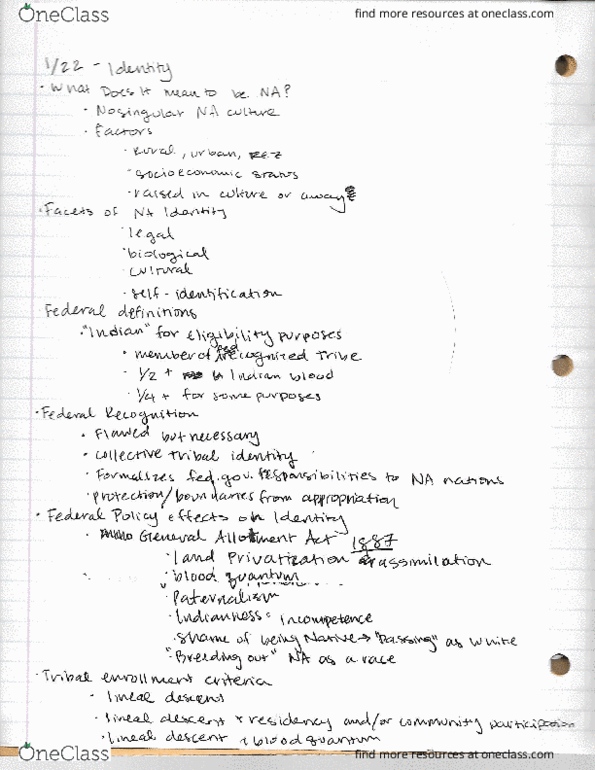 OneClass
find more resources at oneclass.com
1/22 - Identity
• What Does It mean to be NA?
• No singular NA culture
• Factors
• rural, urban, rez
• socioeconomic status
• raised in culture or away
• Facets of NA Identity
• legal
• biological
• cultural
• self-identification
Federal definitions
• "Indian" for eligibility purposes
• member of fed recognized tribe
• 1/2 + Indian blood
• 1/4 + for some purposes
• Federal Recognition
• Flawed but necessary
• collective tribal identity
• Formalizes fed. gov. responsibilities to NA nations
• protection/boundaries from appropriation
• Federal Policy effects on Identity
• General Allotment Act 1887
• land Privatization assimilation
• blood quantum
• Paternalism
• Indianness = incompetence
• shame of being Native → "passing" as white
• "Breeding out" NA as a race
• Tribal enrollment criteria
• lineal descent
• lineal descent + residency and/or community participation
• lineal descent + blood quantum
OneClass
find more resources at oneclass.com